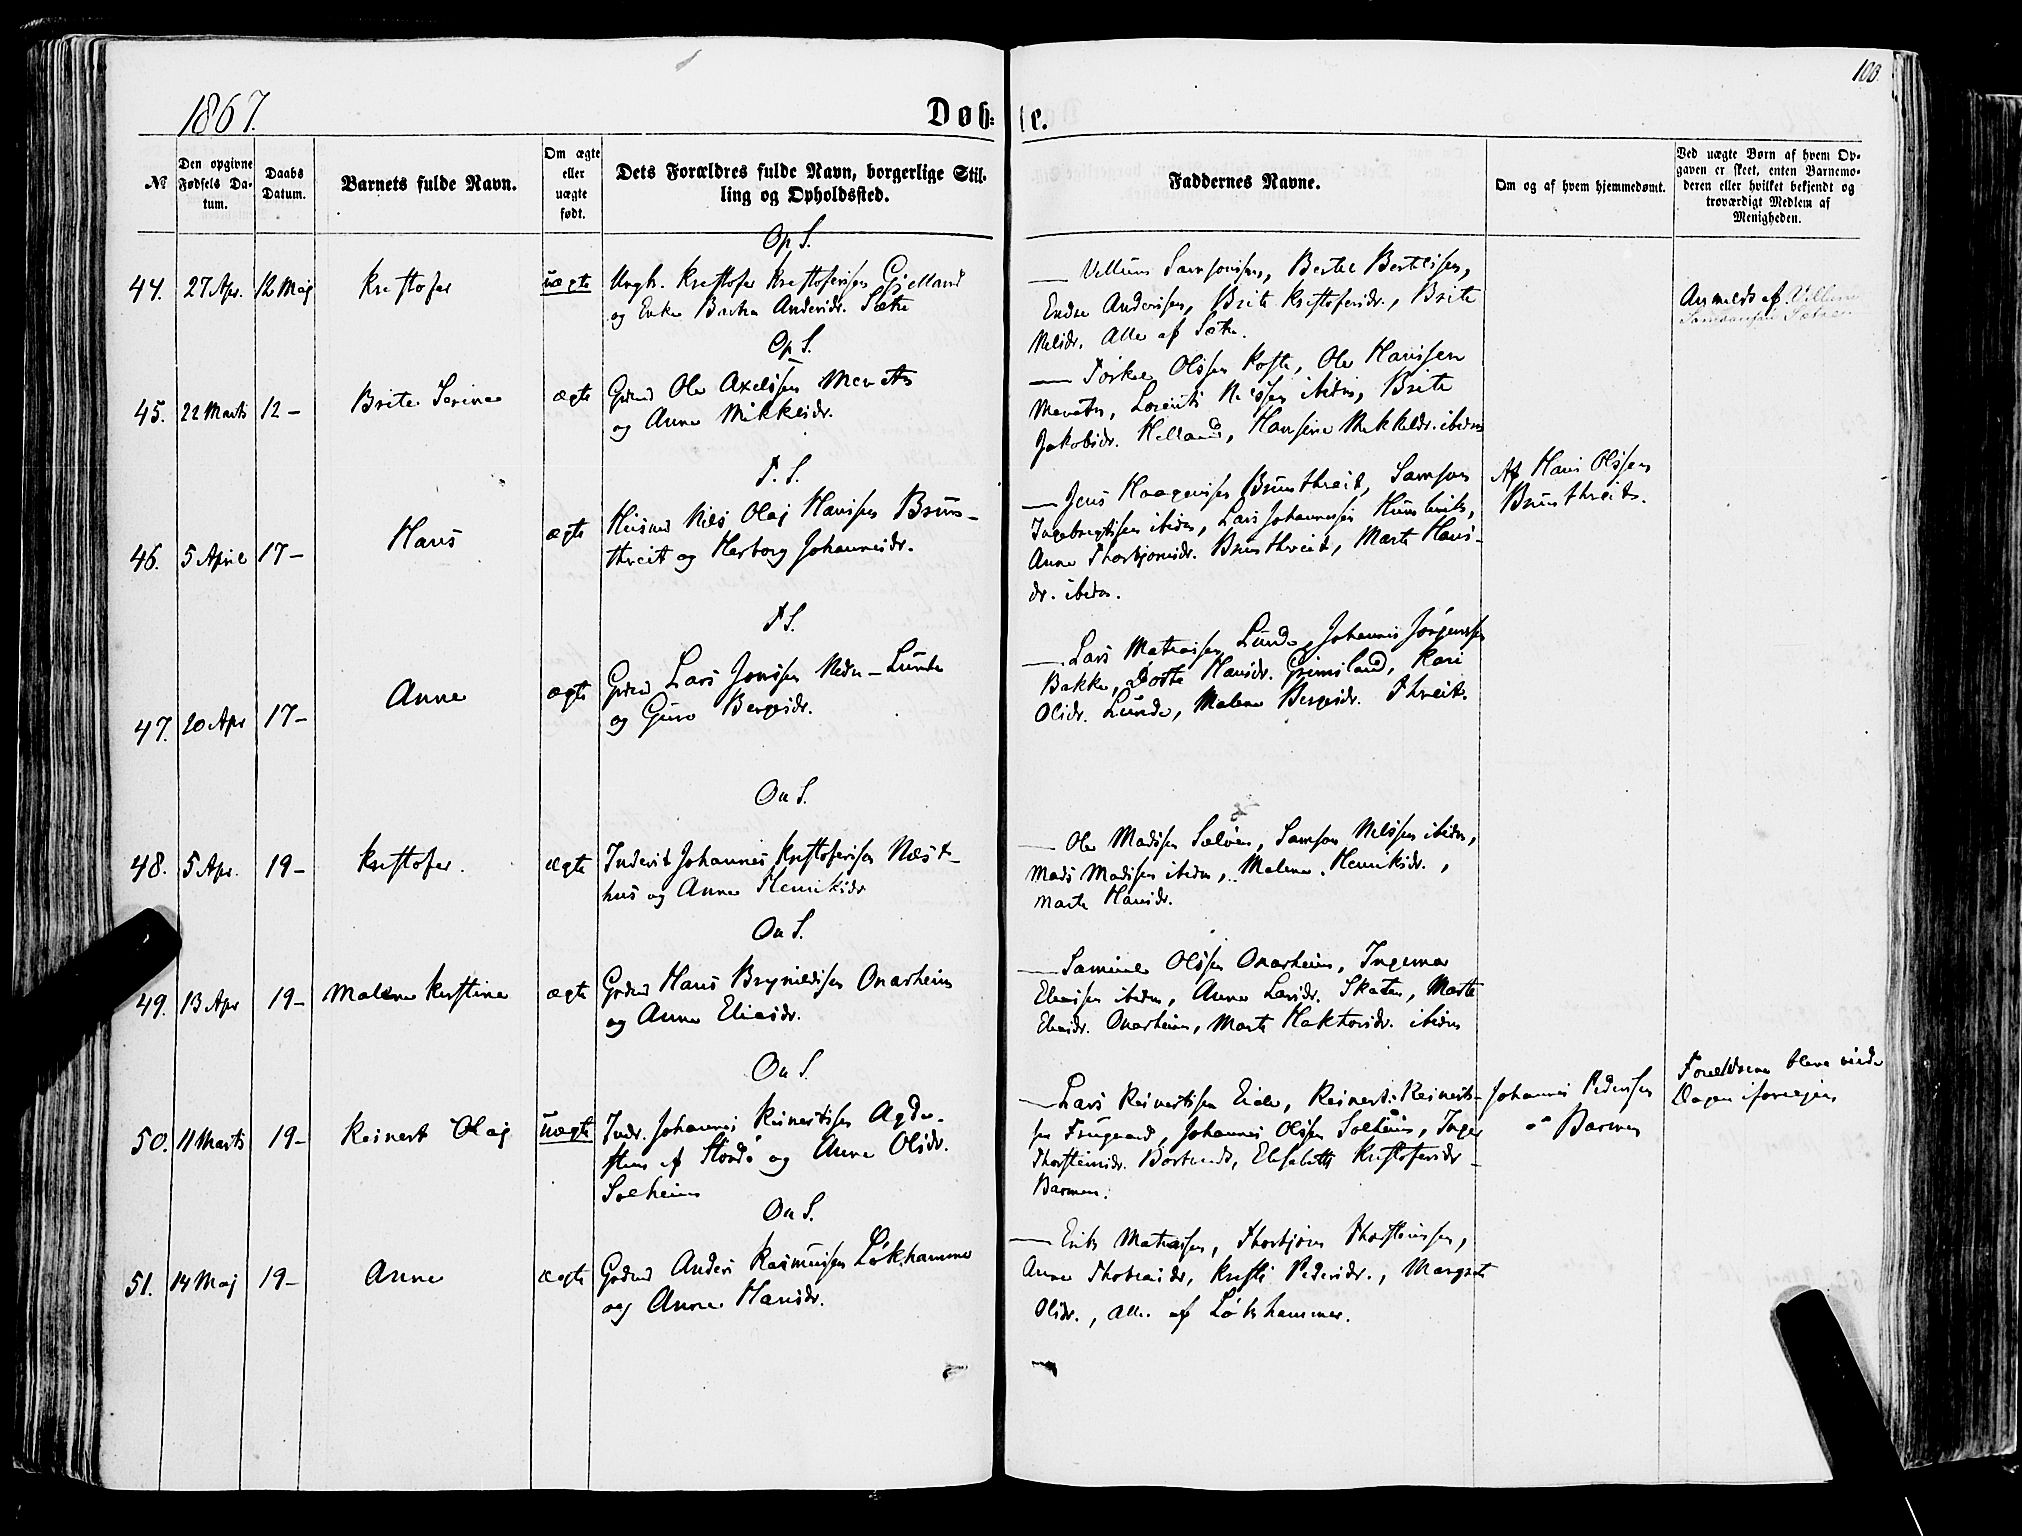 1867.
Døbte.
100
№
Den opgivne Fødsels Datum.
Daabs Datum.
Barnets fulde Navn.
Om ægte eller uægte født.
Dets Forældres fulde Navn, borgerlige Stilling og Opholdssted.
Faddernes Navne.
Om og af hvem hjemmedøbt.
Ved uægte Børn af hvem Opgaven er skeet, enten Barnemoderen eller hvilket bekjendt og troværdigt Medlem af Menigheden.
Op S.
44. 27 Apr. 12 Maj Kristofer uægte Ungk. Kristofer Kristofersen Gjelland
og Enke Andersdr. Sætre
Villum Samsonsen, Bertel Bertelsen,
Endre Andersen, Brite Kristofersdr., Brite
Nilsdr. Alle af Sætre.
Anmeldt af Villum
Samsonsen Sætre
Op S.
45. 22 Marts 12 – Brite Serine ægte Grdmd Ole Axelsen
og Anne Mikkelsdr.
Torkel Olsen Koste, Ole Hanssen
ibidm, Brite
Jakobsdr. Helland, Hansine Mikkelsdr. ibidm
T. S.
46. 5 April 17 – Hans ægte Husmd Nils Olaj Hansen Brun-
threit og Herborg Johannesdr.
Jens Haagensen Brunthreit, Samson
Ingebrigtsen ibidm, Lars Johannessen
Anne Thorbjørnsdr. Brunthreit, Marte Hans-
dr. ibidm.
Af Hans Olssen
Brunthreit.
T S.
47. 20 Apr 17 – Anne ægte Grdmd Lars Jonsen Nedre-Lunde
og Guro Børgesdr.
Lars Matiassen Lunde, Johannes Jørgensen
Bakke, Dorte Hansdr. Grimsland, Kari
Olsdr. Lunde, Malene Børgesdr. Threit.
On S.
48. 5 Apr. 19 – Kristofer. ægte Inderst Johannes Kristofersen Næst-
hus og Anne Henriksdr
Ole Madsen Sælør, Samson Nilsen ibidm,
Mads Madsen ibidm, Malene Henriksdr.,
Marte Hansdr.
On S.
49. 13 Apr 19 – Malene Kirstine ægte Grdmd Hans Brynildsen Onarheim
og Anne Eliasdr.
Samuel Olsen Onarheim, Ingemar
Eliassen ibidm, Anne Larsdr. Skaten, Marte
Eliasdr. Onarheim, Marte Haktorsdr. ibidm
On S.
50. 11 Marts 19 – Reinert Olaj uægte Indr. Johannes Reinertsen Agde-
sten af Stord og Anne Olsdr.
Solheim
Lars Reinertsen Eide, Reinert Reinert-
sen Frugaard, Johannes Olsen Solheim, Inger
Thorsteinsdr. Børtveit, Elisabeth Kristofersdr
Barmen.
Johannes Pedersen
Barmen
Forældrene bleve viede
Dagen iforvejen
On S.
51. 14 Maj 19 – Anne ægte Grdmd Anders Rasmussen Løkhammer
og Anne Hansdr.
Erik Matiassen, Thorbjørn Thorsteinsen,
Anne Thobiasdr, Kristi Pedersdr., Margrete
Olsdr., alle af Løkhammer.